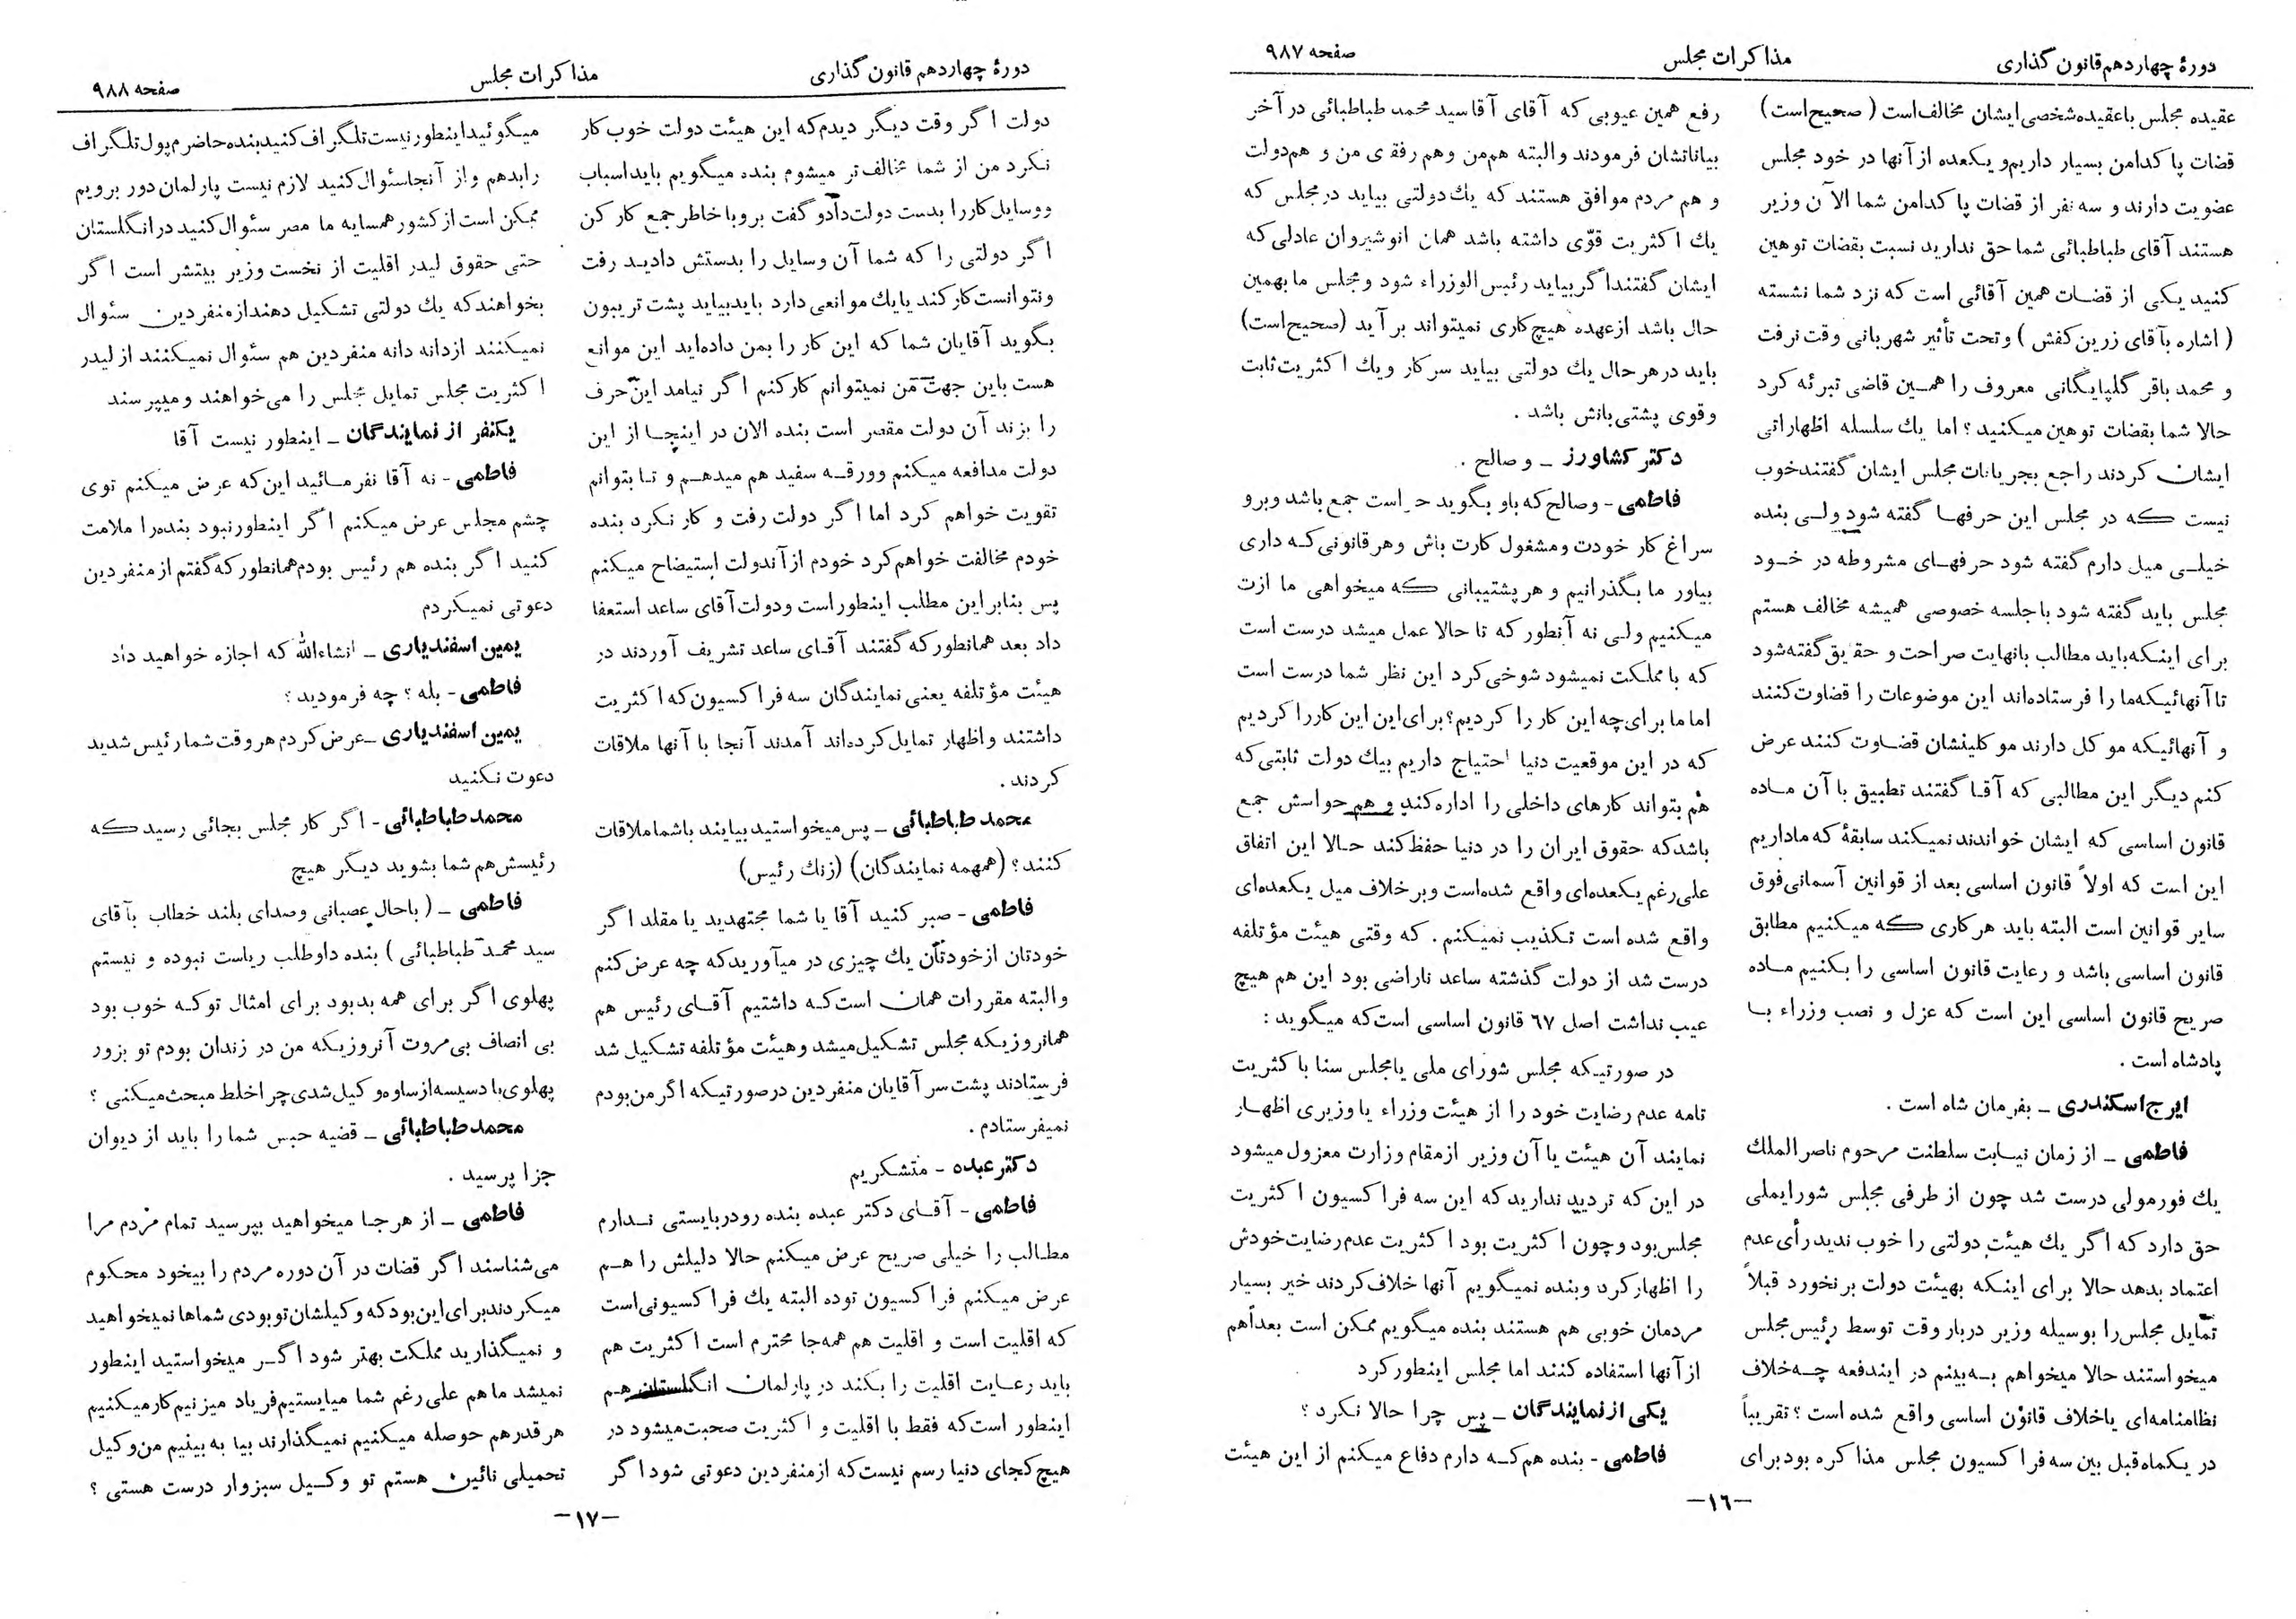 دورهٔ چهاردهم قانون گذاری
مذاکرات مجلس
صفحه ۹۸۷
عقیده مجلس باعقیده شخصی ایشان مخالف است ( صحیح است)
قضات پاکدامن بسیار داریم و یکعده از آنها در خود مجلس
عضویت دارند و سه نفر از قضات پاکدامن شما الآن وزیر
هستند آقای طباطبائی شما حق ندارید نسبت بقضات توهین
کنید یکی از قضات همین آقائی است که نزد شما نشسته
( اشاره بآقای زرین کفش ) و تحت تأثیر شهربانی وقت نرفت
و محمد باقر گلپایگانی معروف را همین قاضی تبرئه کرد
حالا شما بقضات توهین میکنید ؟ اما یك سلسله اظهاراتی
ایشان کردند راجع بجریانات مجلس ایشان گفتند خوب
نیست که در مجلس این حرفها گفته شود ولی بنده
خیلی میل دارم گفته شود حرفهای مشروطه در خود
مجلس باید گفته شود با جلسه خصوصی همیشه مخالف هستم
برای اینکه باید مطالب بانهایت صراحت و حقایق گفته شود
تا آنهائیکه ما را فرستاده‌اند این موضوعات را قضاوت کنند
و آنهائیکه موکل دارند موکلینشان قضاوت کنند عرض
کنم دیگر این مطالبی که آقا گفتند تطبیق با آن ماده
قانون اساسی که ایشان خواندند نمیکند سابقهٔ که ماداریم
این است که اولاً قانون اساسی بعد از قوانین آسمانی فوق
سایر قوانین است البته باید هر کاری که میکنیم مطابق
قانون اساسی باشد و رعایت قانون اساسی را بکنیم ماده
صریح قانون اساسی این است که عزل و نصب وزراء با
پادشاه است .
ایرج اسکندری ـ بفرمان شاه است .
فاطمی ـ از زمان نیابت سلطنت مرحوم ناصرالملك
یك فورمولی درست شد چون از طرفی مجلس شورایملی
حق دارد که اگر یك هیئت دولتی را خوب ندید رأی عدم
اعتماد بدهد حالا برای اینکه بهیئت دولت بر نخورد قبلاً
تمایل مجلس را بوسیله وزیر دربار وقت توسط رئیس مجلس
میخواستند حالا میخواهم به بینم در ایندفعه چه خلاف
نظامنامه‌ای یا خلاف قانون اساسی واقع شده است ؟ تقریباً
در یکماه قبل بین سه فراکسیون مجلس مذاکره بود برای
رفع همین عیوبی که آقای آقاسید محمد طباطبائی در آخر
بیاناتشان فرمودند والبته هم من وهم رفقای من و هم دولت
و هم مردم موافق هستند که یك دولتی بیاید در مجلس که
یك اکثریت قوّی داشته باشد همان انوشیروان عادلی که
ایشان گفتند اگر بیاید رئیس الوزراء شود و مجلس ما بهمین
حال باشد ازعهده هیچ کاری نمیتواند بر آید (صحیح است)
باید درهر حال یك دولتی بیاید سر کار و یك اکثریت ثابت
و قوی پشتی بانش باشد .
دکتر کشاورز ـ و صالح .
فاطمی - وصالح که باو بگوید حواست جمع باشد وبرو
سراغ کار خودت ومشغول کارت باش وهر قانونی که داری
بیاور ما بگذرانیم و هر پشتیبانی که میخواهی ما ازت
میکنیم ولی نه آنطور که تا حالا عمل میشد درست است
که با مملکت نمیشود شوخی کرد این نظر شما درست است
اما ما برای چه این کار را کردیم؟ برای این این کاررا کردیم
که در این موقعیت دنیا احتیاج داریم بیك دولت ثابتی که
هم بتواند کارهای داخلی را اداره کند و هم حواسش جمع
باشد که حقوق ایران را در دنیا حفظ کند حالا این اتفاق
علی رغم یکعده‌ای واقع شده است و بر خلاف میل یکعده‌ای
واقع شده است تکذیب نمیکنم . که وقتی هیئت مؤتلفه
درست شد از دولت گذشته ساعد ناراضی بود این هم هیچ
عیب نداشت اصل ٦٧ قانون اساسی است که میگوید :
در صورتیکه مجلس شورای ملی یا مجلس سنا با کثریت
تامه عدم رضایت خود را از هیئت وزراء یا وزیری اظهار
نمایند آن هیئت یا آن وزیر از مقام وزارت معزول میشود
در این که تردید ندارید که این سه فراکسیون اکثریت
مجلس بود و چون اکثریت بود اکثریت عدم رضایت خودش
را اظهار کرد و بنده نمیگویم آنها خلاف کردند خیر بسیار
مردمان خوبی هم هستند بنده میگویم ممکن است بعداً هم
از آنها استفاده کنند اما مجلس اینطور کرد
یکی از نمایندگان ـ پس چرا حالا نکرد ؟
فاطمی - بنده هم که دارم دفاع میکنم از این هیئت
-١٦-
دورهٔ چهاردهم قانون گذاری
مذاکرات مجلس
صفحه ۹۸۸
دولت اگر وقت دیگر دیدم که این هیئت دولت خوب کار
نکرد من از شما مخالف تر میشوم بنده میگویم باید اسباب
ووسایل کاررا بدست دولت داد و گفت برو با خاطر جمع کار کن
اگر دولتی را که شما آن وسایل را بدستش دادید رفت
ونتوانست کار کند یا یك موانعی دارد باید بیاید پشت تریبون
بگوید آقایان شما که این کار را بمن داده‌اید این موانع
هست باین جهت من نمیتوانم کار کنم اگر نیامد این حرف
را بزند آن دولت مقصر است بنده الان در اینجا از این
دولت مدافعه میکنم وورقه سفید هم میدهم و تا بتوانم
تقویت خواهم کرد اما اگر دولت رفت و کار نکرد بنده
خودم مخالفت خواهم کرد خودم از آندولت استیضاح میکنم
پس بنابراین مطلب اینطور است ودولت آقای ساعد استعفا
داد بعد همانطور که گفتند آقای ساعد تشریف آوردند در
هیئت مؤتلفه یعنی نمایندگان سه فراکسیون که اکثریت
داشتند و اظهار تمایل کرده‌اند آمدند آنجا با آنها ملاقات
کردند .
محمد طباطبائی ـ پس میخواستید بیایند باشما ملاقات
کنند ؟ (همهمه نمایندگان) (زنك رئیس)
فاطمی - صبر کنید آقا یا شما مجتهدید یا مقلد اگر
خودتان ازخودتان یك چیزی در میآورید که چه عرض کنم
والبته مقررات همان است که داشتیم آقای رئیس هم
همانروزیکه مجلس تشکیل میشد وهیئت مؤتلفه تشکیل شد
فرستادند پشت سر آقایان منفردین درصورتیکه اگر من بودم
نمیفرستادم .
دکتر عبده - متشکریم
فاطمی - آقای دکتر عبده بنده رودربایستی ندارم
مطالب را خیلی صریح عرض میکنم حالا دلیلش را هم
عرض میکنم فراکسیون توده البته یك فراکسیونی است
که اقلیت است و اقلیت هم همه جا محترم است اکثریت هم
باید رعایت اقلیت را بکند در پارلمان انگلستان هم
اینطور است که فقط با اقلیت و اکثریت صحبت میشود در
هیچ کجای دنیا رسم نیست که از منفردین دعوتی شود اگر
میگوئید اینطور نیست تلگراف کنید بنده حاضرم پول تلگراف
را بدهم و از آنجا سئوال کنید لازم نیست پارلمان دور برویم
ممکن است از کشور همسایه ما مصر سئوال کنید در انگلستان
حتی حقوق لیدر اقلیت از نخست وزیر بیشتر است اگر
بخواهند که یك دولتی تشکیل دهند از منفردین سئوال
نمیکنند ازدانه دانه منفردین هم سئوال نمیکنند از لیدر
اکثریت مجلس تمایل مجلس را می‌خواهند و میپرسند
یکنفر از نمایندگان ـ اینطور نیست آقا
فاطمی - نه آقا نفرمائید این که عرض میکنم توی
چشم مجلس عرض میکنم اگر اینطور نبود بنده را ملامت
کنید اگر بنده هم رئیس بودم همانطور که گفتم از منفردین
دعوتی نمیکردم
یمین اسفندیاری ـ انشاءالله که اجازه خواهید داد
فاطمی - بله ؟ چه فرمودید ؟
یمین اسفندیاری ـ عرض کردم هر وقت شما رئیس شدید
دعوت نکنید
محمد طباطبائی - اگر کار مجلس بجائی رسید که
رئیسش هم شما بشوید دیگر هیچ
فاطمی ـ ( باحال عصبانی وصدای بلند خطاب بآقای
سید محمد طباطبائی ) بنده داوطلب ریاست نبوده و نیستم
پهلوی اگر برای همه بد بود برای امثال تو که خوب بود
بی انصاف بی مروت آنروزیکه من در زندان بودم تو بزور
پهلوی با دسیسه از ساوه وکیل شدی چرا خلط مبحث میکنی ؟
محمد طباطبائی ـ قضیه حبس شما را باید از دیوان
جزا پرسید .
فاطمی ـ از هر جا میخواهید بپرسید تمام مردم مرا
می‌شناسند اگر قضات در آن دوره مردم را بیخود محکوم
میکردند برای این بود که وکیلشان تو بودی شماها نمیخواهید
و نمیگذارید مملکت بهتر شود اگر میخواستید اینطور
نمیشد ما هم علی رغم شما میایستیم فریاد میزنیم کار میکنیم
هر قدر هم حوصله میکنیم نمیگذارند بیا به بینیم من وکیل
تحمیلی نائین هستم تو وکیل سبزوار درست هستی ؟
-١٧-